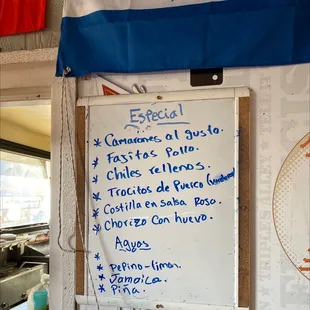 Especial
* Camarones al gusto.
* Fajitas Pollo.
* Chiles rellenos.
* Trocitos de Puerco
* Costilla en salsa Roso.
* Chorizo Con huevo.
Aguas
* Pepino-limon.
* Jamaica.
* Piña.